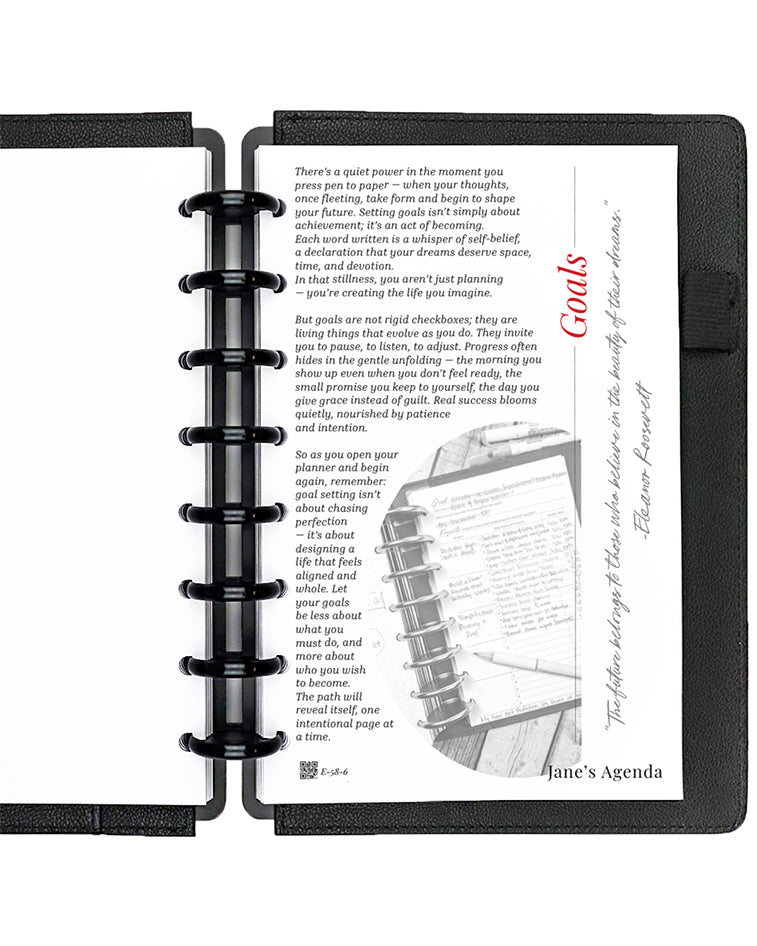 There's a quiet power in the moment you
press pen to paper — when your thoughts,
once fleeting, take form and begin to shape
your future. Setting goals isn't simply about
achievement; it's an act of becoming.
Each word written is a whisper of self-belief,
a declaration that your dreams deserve space,
time, and devotion.
In that stillness, you aren't just planning
— you're creating the life you imagine.
But goals are not rigid checkboxes; they are
living things that evolve as you do. They invite
you to pause, to listen, to adjust. Progress often
hides in the gentle unfolding — the morning you
show up even when you don't feel ready, the
small promise you keep to yourself, the day you
give grace instead of guilt. Real success blooms
quietly, nourished by patience
and intention.
So as you open your
planner and begin
again, remember:
goal setting isn't
about chasing
perfection
— it's about
designing a
life that feels
aligned and
whole. Let
your goals
be less about
what you
must do, and
more about
who you wish
to become.
The path will
reveal itself, one
intentional page at
a time.
E-58-6
Goals
"The future belongs to those who believe in the beauty of their dreams."
-Eleanor Roosevelt
Jane's Agenda